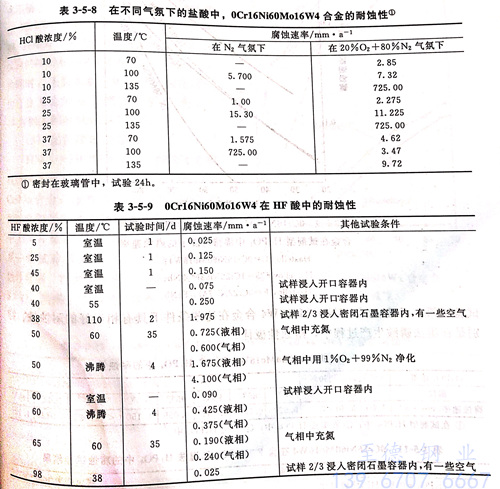 表 3-5-8 在不同气氛下的盐酸中，0Cr16Ni60Mo16W4 合金的耐蚀性①
HCl 酸浓度/% 温度/℃ 腐蚀速率/mm·a⁻¹
在 N₂ 气氛下 在 20%O₂+80%N₂ 气氛下
10 70 — 2.85
10 100 5.700 7.32
10 135 — 725.00
25 70 1.00 2.275
25 100 15.30 11.225
25 135 — 725.00
37 70 1.575 4.62
37 100 725.00 3.47
37 135 — 9.72
① 密封在玻璃管中，试验 24h。
表 3-5-9 0Cr16Ni60Mo16W4 在 HF 酸中的耐蚀性
HF 酸浓度/% 温度/℃ 试验时间/d 腐蚀速率/mm·a⁻¹ 其他试验条件
5 室温 1 0.025
25 室温 1 0.125
45 室温 1 0.150
40 室温 — 0.075 试样浸入开口容器内
40 55 0.250 试样浸入开口容器内
38 110 2 1.975 试样 2/3 浸入密闭石墨容器内，有一些空气
50 60 35 0.725(液相) 气相中充氮
0.600(气相)
50 沸腾 4 1.675(液相) 气相中用 1%O₂+99%N₂ 净化
4.100(气相)
60 室温 — 0.090 试样浸入开口容器内
60 沸腾 4 0.425(液相)
0.375(气相)
65 60 35 0.190(液相) 气相中充氮
0.240(气相)
98 38 0.025 试样 2/3 浸入密闭石墨容器内，有一些空气
至德钢业
139 6707 6667